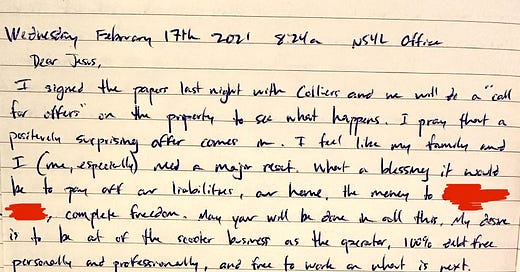 Wednesday February 17th 2021 8:24a NSYL Office
Dear Jesus,
I signed the papers last night with Colliers and we will do a "call
for offers" on the property to see what happens. I pray that a
positively surprising offer comes in. I feel like my family and
I (me, especially) need a major reset. What a blessing it would
be to pay off our liabilities, our home, the money to
, complete freedom. May your will be done in all this. My desire
is to be out of the scooter business as the operator, 100% debt free
personally and professionally, and free to work on what is next.